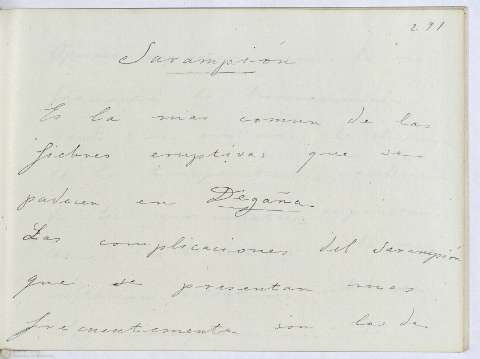 291
Sarampión
Es la mas comun de las
fiebres eruptivas que se
padecen en Degaña.
Las complicaciones del sarampión
que se presentan mas
frecuentemente son las de